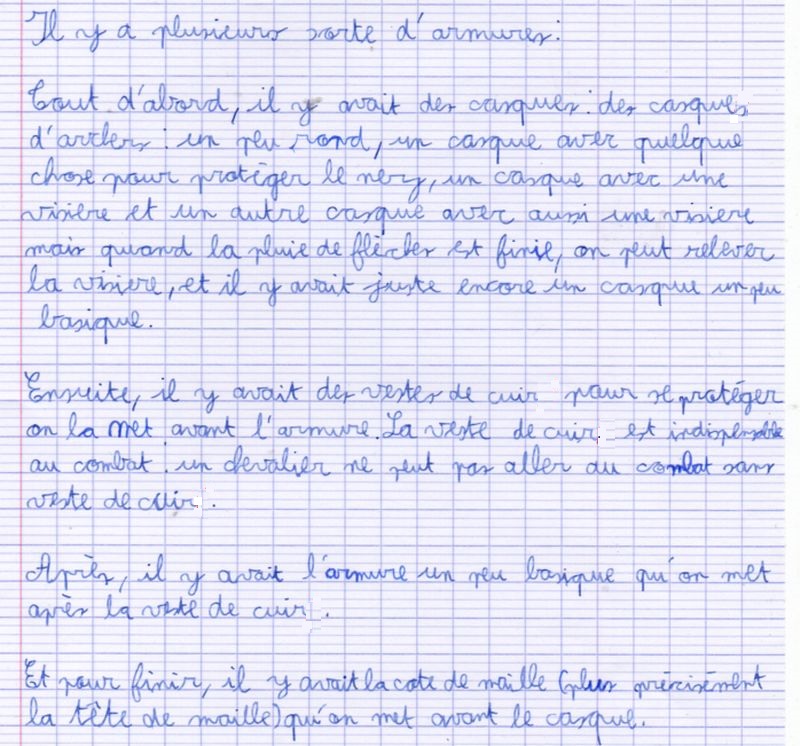 Il y a plusieurs sorte d'armures :
Tout d'abord, il y avait des casques : des casques
d'archers : un peu rond, un casque avec quelque
chose pour protéger le nez, un casque avec une
visiere et un autre casque avec aussi une visiere
mais quand la pluie de flèches est finie, on peut relever
la visiere, et il y avait juste encore un casque un peu
basique.
Ensuite, il y avait des vestes de cuir pour se protéger
on la met avant l'armure. La veste de cuir est indispensable
au combat : un chevalier ne peut pas aller au combat sans
veste de cuir.
Après, il y avait l'armure un peu basique qu'on met
après la veste de cuir.
Et pour finir, il y avait la cote de maille (plus précisément
la tête de maille) qu'on met avant le casque.